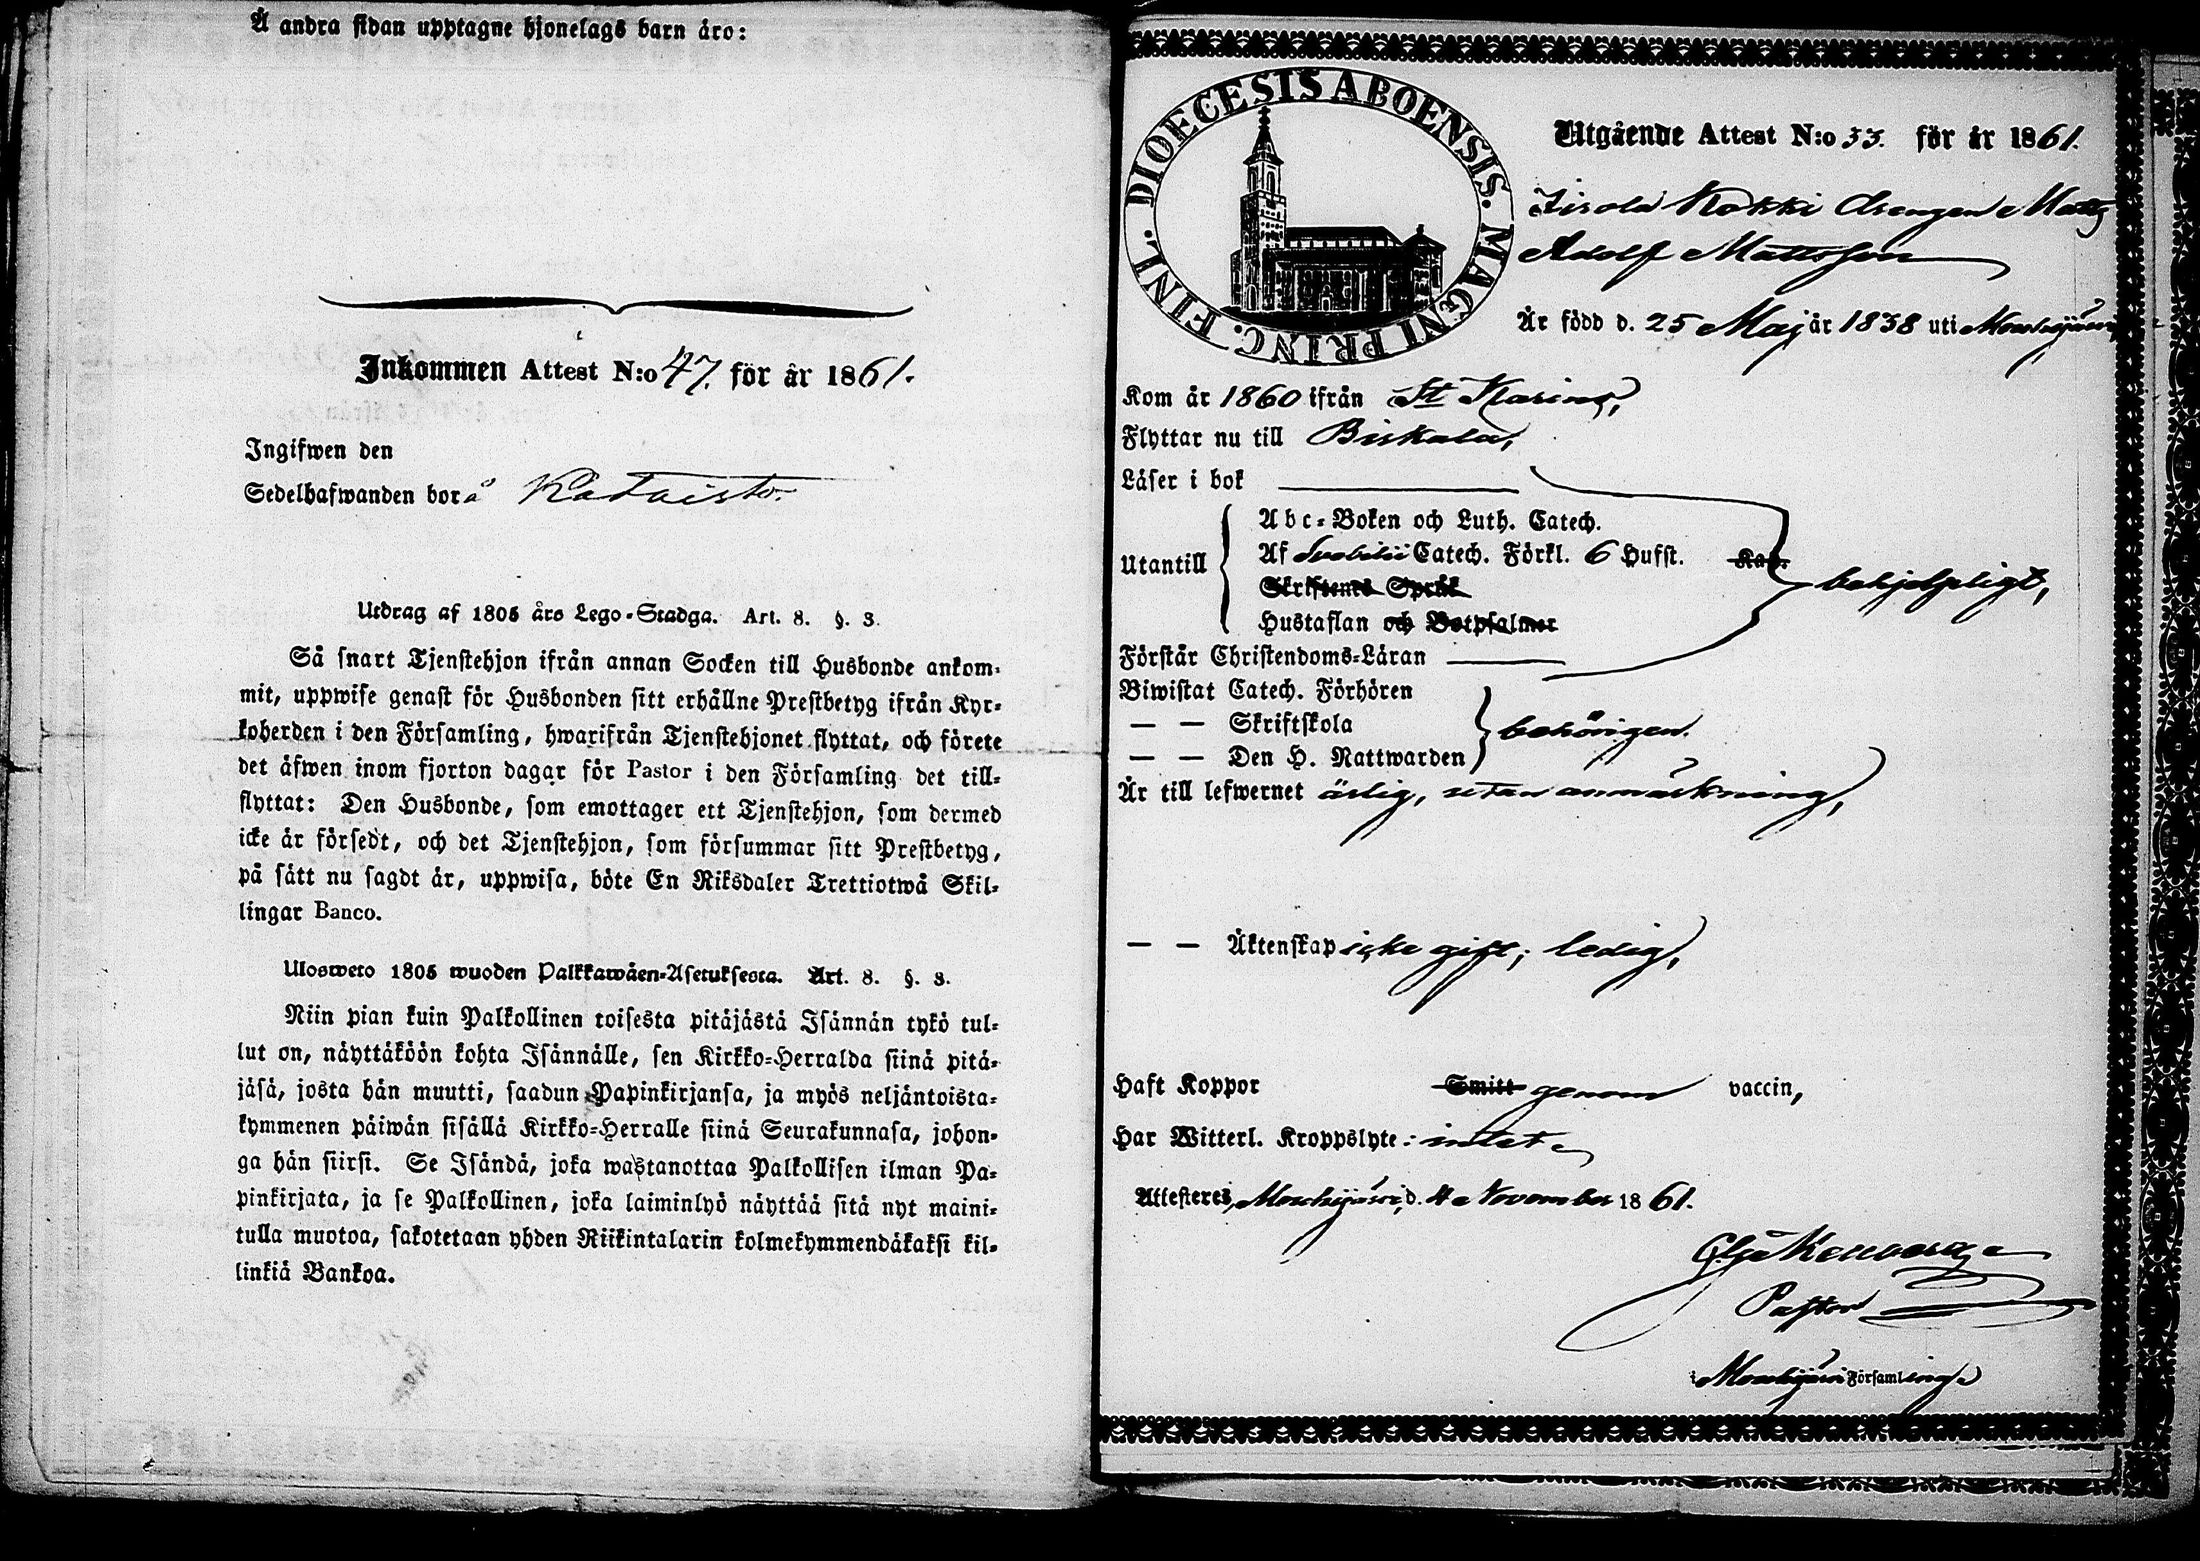 Å andra sidan upptagne hjonelags barn äro:
Inkommen Attest N:o 47. för år 1861.
Ingifwen den
Sedelhafwanden bor å Kataisto
Utdrag af 1805 års Lego-Stadga. Art. 8. §. 3.
Så snart Tjenstehjon ifrån annan Socken till Husbonde ankom-
mit, uppwise genast för Husbonden sitt erhållne Prestbetyg ifrån Kyr-
koherden i den Församling, hwarifrån Tjenstehjonet flyttat, och förete
det äfwen inom fjorton dagar för Pastor i den Församling det till-
flyttat: Den Husbonde, som emottager ett Tjenstehjon, som dermed
icke är försedt, och det Tjenstehjon, som försummar sitt Prestbetyg,
på sätt nu sagdt är, uppwisa, böte En Riksdaler Trettiotwå Skil-
lingar Banco.
Ulosweto 1805 wuoden Palkkawäen-Asetuksesta. Art. 8. §. 3.
Niin pian kuin Palkollinen toisesta pitäjästä Isännän tykö tul-
lut on, näyttäköön kohta Isännälle, sen Kirkko-Herralda siinä pitä-
jäsä, josta hän muutti, saadun Papinkirjansa, ja myös neljäntoista-
kymmenen päiwän sisällä Kirkko-Herralle siinä Seurakunnasa, johon-
ga hän siirsi. Se Isändä, joka wastanottaa Palkollisen ilman Pa-
pinkirjata, ja se Palkollinen, joka laiminlyö näyttää sitä nyt maini-
tulla muotoa, sakotetaan yhden Riikintalarin kolmekymmendäkaksi kil-
linkiä Bankoa.
DIOECESIS ABOENSIS. MAGNI PRINC. FINL.
Utgående Attest N:o 33. för år 1861.
Kokki Drengen Matts
Adolf Mattsson
Är född d. 25 Maj år 1838 uti Mouhijärvi
Kom år 1860 ifrån St Karins,
Flyttar nu till Birkala,
Läser i bok
Abc-Boken och Luth. Catech.
Utantill Af Svebilii Catech. Förkl. 6 Hufst. Kap.
Skriftenes Språk
Hustaflan och Botpsalmer
behjelpligt,
Förstår Christendoms-Läran
Biwistat Catech. Förhören
— — Skriftskola
— — Den H. Nattwarden
behörigen.
Är till lefwernet ärlig, utan anmärkning,
— — Äktenskap icke gift; ledig,
Haft Koppor Smitt genom vaccin,
Har Witterl. Kroppslyte: intet
Attesteres, Mouhijärvi, d. 4 November 1861.
Pastor
i Mouhijärvi Församling